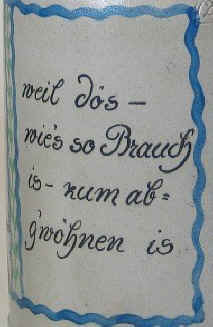 weil dös –
wie's so Brauch
is – zum ab=
g'wöhnen is